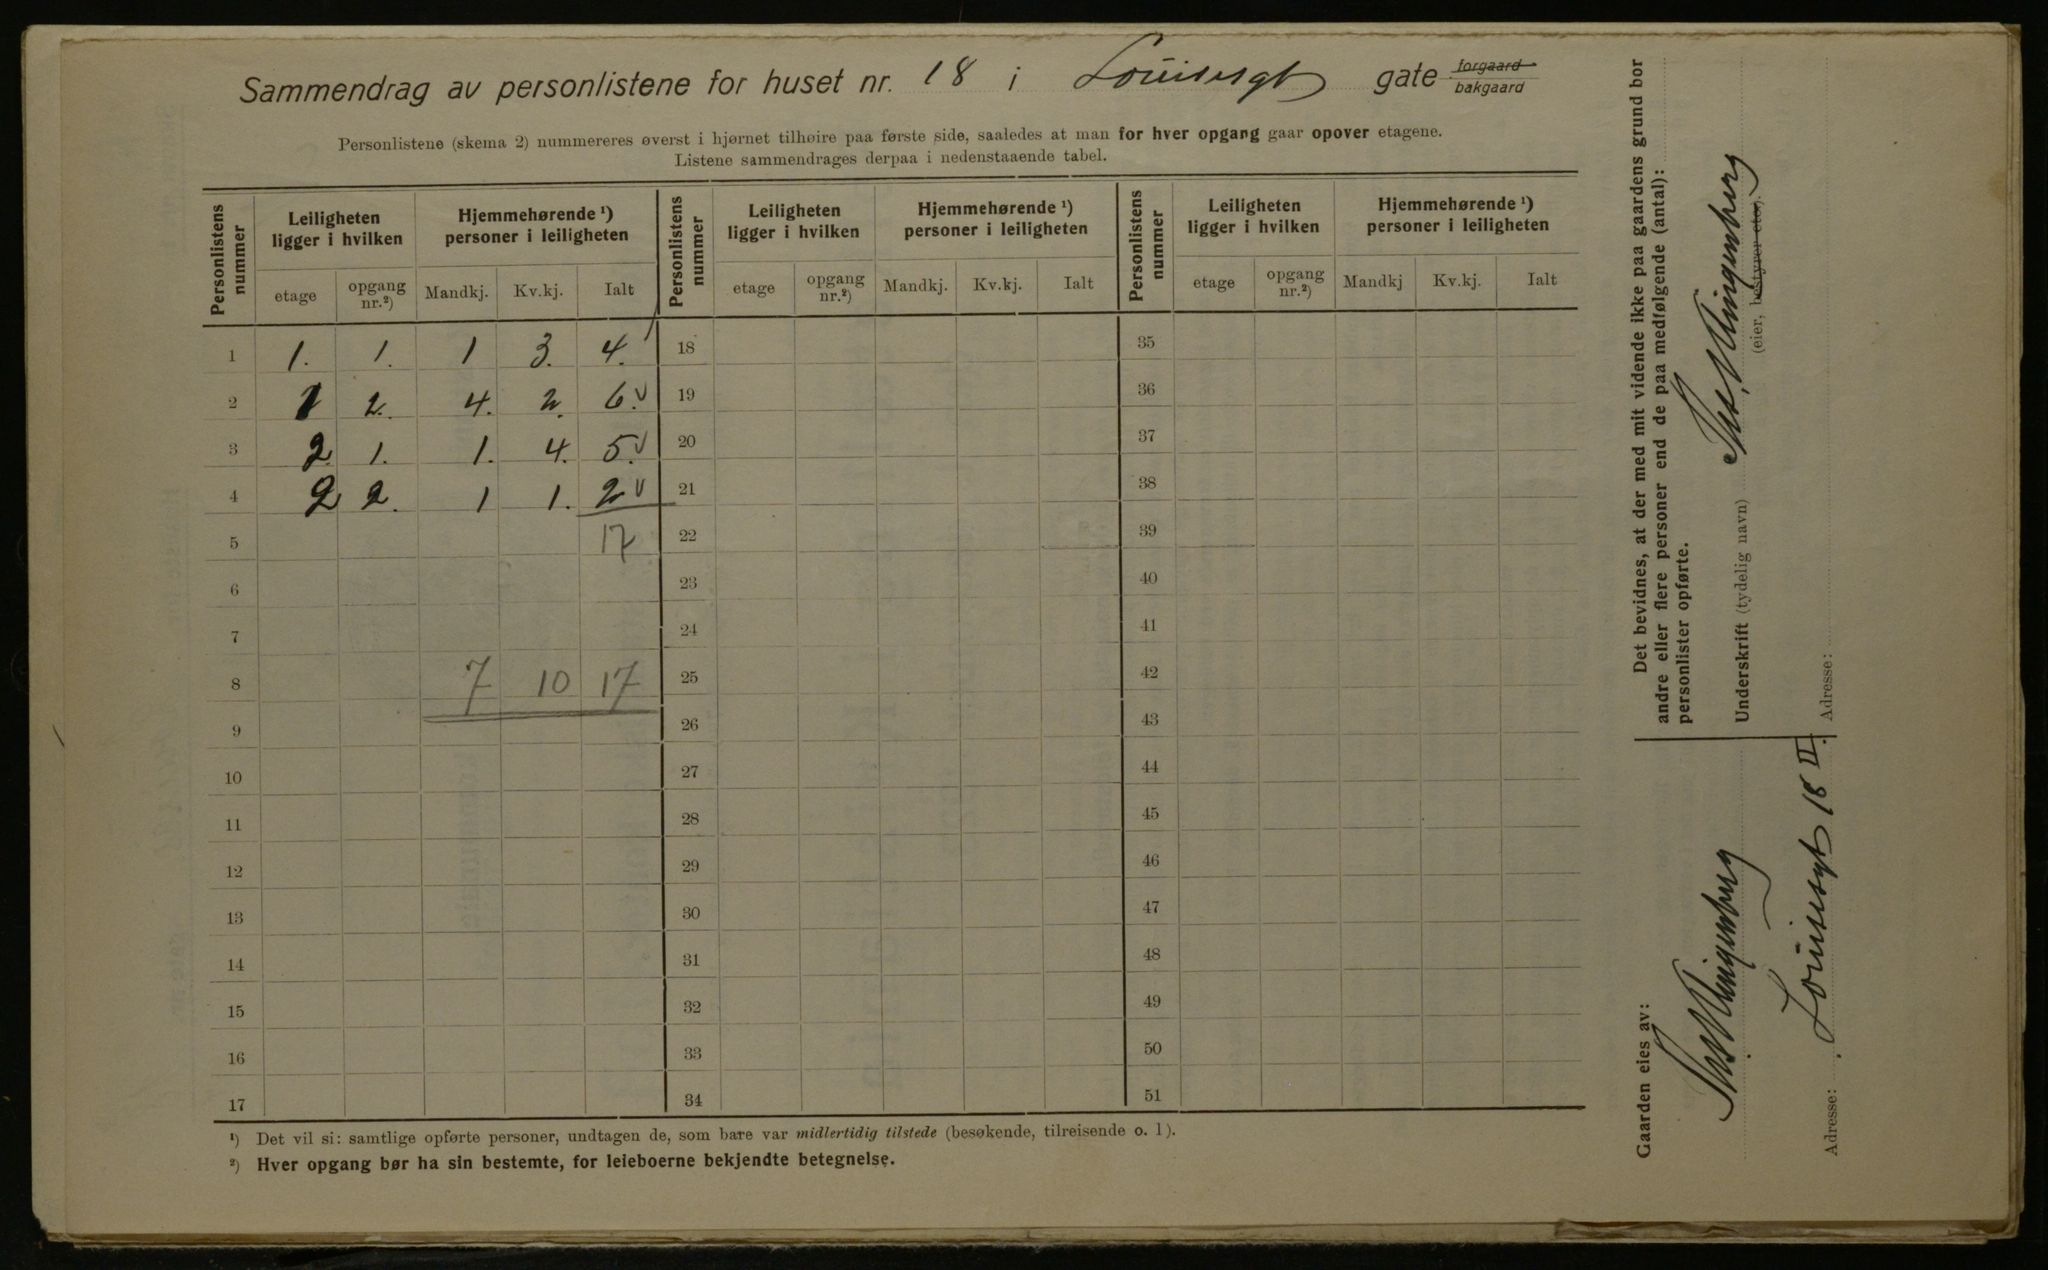 Sammendrag av personlistene for huset nr. 18 i Louisesgt gate forgaard bakgaard
Personlistene (skema 2) nummereres øverst i hjørnet tilhøire paa første side, saaledes at man for hver opgang gaar opover etagene.
Listene sammendrages derpaa i nedenstaaende tabel.
Personlistens nummer | Leiligheten ligger i hvilken | Hjemmehørende ¹) personer i leiligheten | Personlistens nummer | Leiligheten ligger i hvilken | Hjemmehørende ¹) personer i leiligheten | Personlistens nummer | Leiligheten ligger i hvilken | Hjemmehørende ¹) personer i leiligheten
etage | opgang nr.²) | Mandkj. | Kv.kj. | Ialt | etage | opgang nr.²) | Mandkj. | Kv.kj. | Ialt | etage | opgang nr.²) | Mandkj | Kv.kj. | Ialt
1 | 1. | 1. | 1 | 3. | 4. | 18 | 35
2 | 1 | 2. | 4. | 2. | 6. | 19 | 36
3 | 2. | 1. | 1. | 4. | 5. | 20 | 37
4 | 2 | 2. | 1 | 1. | 2 | 21 | 38
5 | 17 | 22 | 39
6 | 23 | 40
7 | 24 | 41
8 | 7 | 10 | 17 | 25 | 42
9 | 26 | 43
10 | 27 | 44
11 | 28 | 45
12 | 29 | 46
13 | 30 | 47
14 | 31 | 48
15 | 32 | 49
16 | 33 | 50
17 | 34 | 51
¹) Det vil si: samtlige opførte personer, undtagen de, som bare var midlertidig tilstede (besøkende, tilreisende o. l).
²) Hver opgang bør ha sin bestemte, for leieboerne bekjendte betegnelse.
Det bevidnes, at der med mit vidende ikke paa gaardens grund bor
andre eller flere personer end de paa medfølgende (antal):
personlister opførte.
Underskrift (tydelig navn) Klingenberg
(eier, bestyrer etc.)
Adresse:
Gaarden eies av:
Klingenberg
Adresse: Louisesgt 18 II.